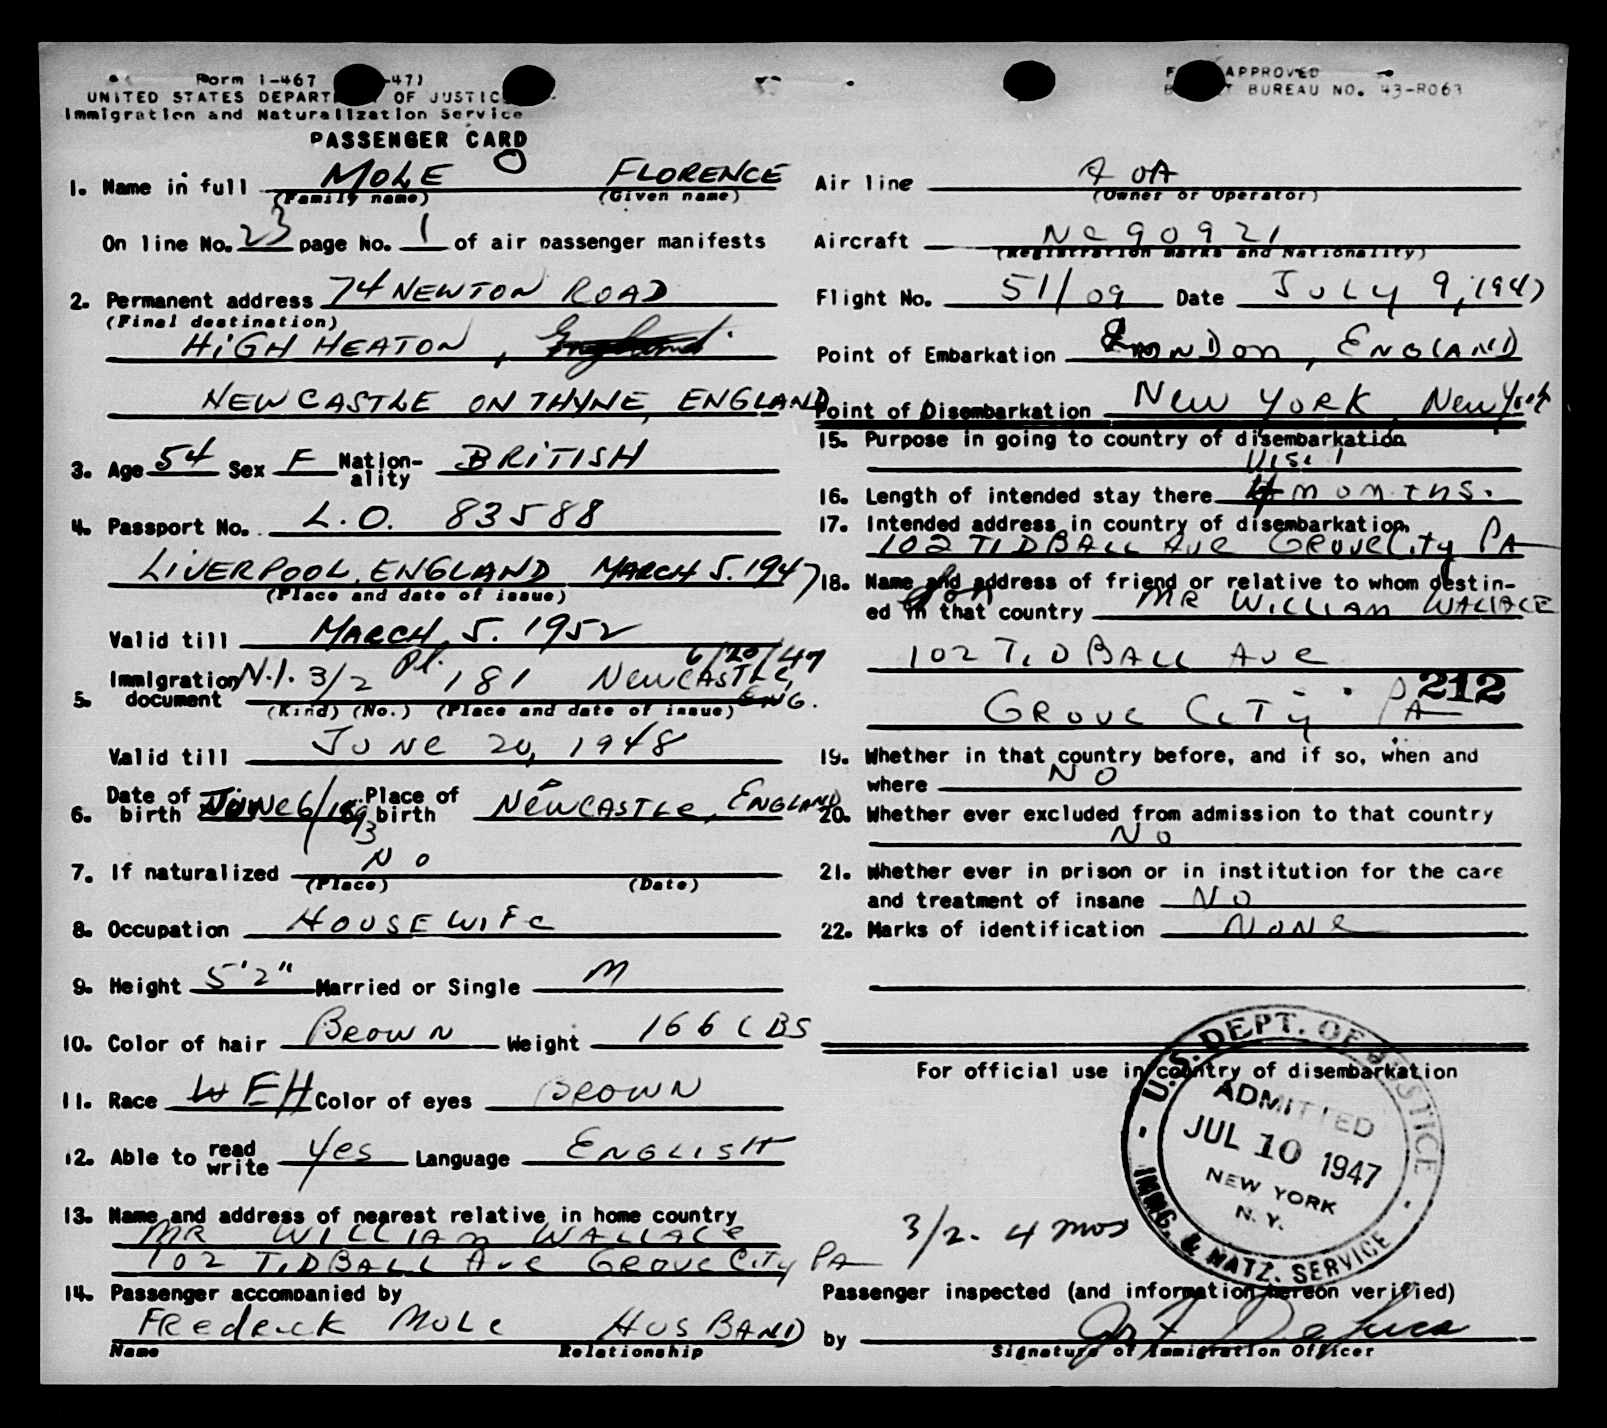 Form I-467
UNITED STATES DEPARTMENT OF JUSTICE
Immigration and Naturalization Service
PASSENGER CARD
FORM APPROVED
BUDGET BUREAU NO. 43-R063
1. Name in full MOLE FLORENCE
(Family name) (Given name)
On line No. 23 page No. 1 of air passenger manifests
2. Permanent address 74 NEWTON ROAD
(Final destination)
HIGH HEATON, England
NEWCASTLE ON THYNE, ENGLAND
3. Age 54 Sex F Nation-ality BRITISH
4. Passport No. L.O. 83588
LIVERPOOL, ENGLAND MARCH 5. 1947
(Place and date of issue)
Valid till MARCH, 5. 1952
6/20/47
5. Immigration document N.I. 3/2 Pl. 181 NEWCASTLE, ENG.
(Kind) (No.) (Place and date of issue)
Valid till JUNE 20, 1948
6. Date of birth JUNE 6/1893 Place of birth NEWCASTLE, ENGLAND
7. If naturalized NO
(Place) (Date)
8. Occupation HOUSEWIFE
9. Height 5'2" Married or Single M
10. Color of hair BROWN Weight 166 LBS
11. Race W EH Color of eyes BROWN
12. Able to read write Yes Language ENGLISH
13. Name and address of nearest relative in home country
MR WILLIAM WALLACE
102 TIDBALL AVE GROVE CITY PA
14. Passenger accompanied by
FREDERICK MOLE HUSBAND
Name Relationship
Air line AOA
(Owner or Operator)
Aircraft NC90921
(Registration marks and Nationality)
Flight No. 51/09 Date JULY 9, 1947
Point of Embarkation LONDON, ENGLAND
Point of Disembarkation NEW YORK, New York
15. Purpose in going to country of disembarkation
VISIT
16. Length of intended stay there 4 MONTHS.
17. Intended address in country of disembarkation
102 TIDBALL AVE GROVE CITY PA
18. Name and address of friend or relative to whom destin-
Son
ed in that country MR WILLIAM WALLACE
102 TIDBALL AVE
212
GROVE CITY PA
19. Whether in that country before, and if so, when and
where NO
20. Whether ever excluded from admission to that country
NO
21. Whether ever in prison or in institution for the care
and treatment of insane NO
22. Marks of identification NONE
For official use in country of disembarkation
U.S. DEPT. OF JUSTICE
ADMITTED
JUL 10 1947
NEW YORK
N.Y.
IMMG. & NATZ. SERVICE
3/2. 4 mos
Passenger inspected (and information hereon verified)
by
Signature of Immigration Officer